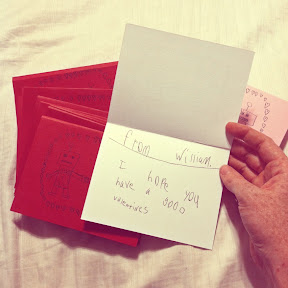 from William
I hope you
have a good
valentines